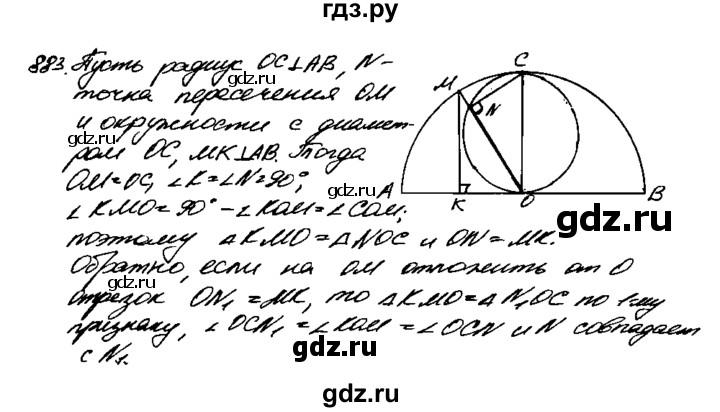 гдз.ру
883. Пусть радиус OC⊥AB, N-
точка пересечения OM
и окружности с диамет-
ром OC, MK⊥AB. Тогда
OM=OC, ∠K=∠N=90°,
∠KMO=90°-∠KOM=∠COM;
поэтому △KMO=△NOC и ON=MK.
Обратно, если на OM отложить от O
отрезок ON₁=MK, то △KMO=△N₁OC по 1-му
признаку, ∠OCN₁=∠KOM=∠OCN и N совпадает
с N₁.
C
M
N
A
K
O
B
gdz.ru
gdz.ru
gdz.ru
gdz.ru
gdz.ru
gdz.ru
gdz.ru
gdz.ru